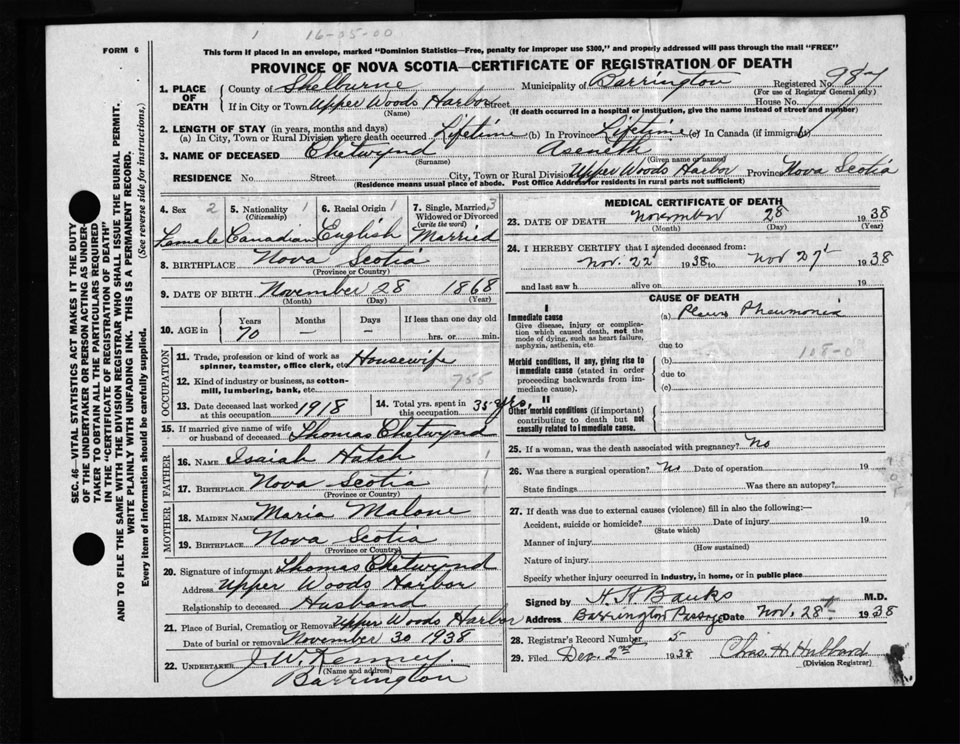 1 16-05-00
FORM 6
This form if placed in an envelope, marked "Dominion Statistics—Free, penalty for improper use $300," and properly addressed will pass through the mail "FREE"
PROVINCE OF NOVA SCOTIA—CERTIFICATE OF REGISTRATION OF DEATH
1. PLACE OF DEATH
County of Shelburne Municipality of Barrington Registered No. 987
(For use of Registrar General only)
If in City or Town Upper Woods Harbor Street House No.
(Name) (If death occurred in a hospital or institution, give the name instead of street and number)
2. LENGTH OF STAY (in years, months and days)
(a) In City, Town or Rural Division where death occurred Lifetime (b) In Province Lifetime (c) In Canada (if immigrant)
3. NAME OF DECEASED Chetwynd Aseneth
(Surname) (Given name or names)
RESIDENCE No. Street City, Town or Rural Division Upper Woods Harbor Province Nova Scotia
(Residence means usual place of abode. Post Office Address for residents in rural parts not sufficient)
4. Sex 2 Female
5. Nationality 1 (Citizenship) Canadian
6. Racial Origin 1 English
7. Single, Married, 3 Widowed or Divorced (write the word) Married
8. BIRTHPLACE Nova Scotia
(Province or Country)
9. DATE OF BIRTH November 28 1868
(Month) (Day) (Year)
10. AGE in Years Months Days If less than one day old
70 — — hrs. or min.
OCCUPATION
11. Trade, profession or kind of work as spinner, teamster, office clerk, etc Housewife
12. Kind of industry or business, as cotton-mill, lumbering, bank, etc. 755
13. Date deceased last worked at this occupation 1918
14. Total yrs. spent in this occupation 35 yrs.
15. If married give name of wife or husband of deceased Thomas Chetwynd
FATHER
16. NAME Isaiah Hatch 1
17. BIRTHPLACE Nova Scotia 1
(Province or Country)
MOTHER
18. MAIDEN NAME Maria Malone
19. BIRTHPLACE Nova Scotia
(Province or Country)
20. Signature of informant Thomas Chetwynd
Address Upper Woods Harbor
Relationship to deceased Husband
21. Place of Burial, Cremation or Removal Upper Woods Harbor
Date of burial or removal November 30 1938
22. UNDERTAKER J. W. Kenney.
(Name and address)
Barrington
MEDICAL CERTIFICATE OF DEATH
23. DATE OF DEATH November 28 1938
(Month) (Day) (Year)
24. I HEREBY CERTIFY that I attended deceased from:
Nov. 22 1938 to Nov 27 1938
and last saw h alive on 19
CAUSE OF DEATH
I
Immediate cause
Give disease, injury or complication which caused death, not the mode of dying, such as heart failure, asphyxia, asthenia, etc.
(a) Pleuro Pneumonia
due to
108-0
Morbid conditions, if any, giving rise to immediate cause (stated in order proceeding backwards from immediate cause).
(b)
due to
(c)
II
Other morbid conditions (if important) contributing to death but not causally related to immediate cause.
25. If a woman, was the death associated with pregnancy? No
26. Was there a surgical operation? No Date of operation 19
State findings Was there an autopsy?
27. If death was due to external causes (violence) fill in also the following:—
Accident, suicide or homicide? Date of injury 19
(State which)
Manner of injury
(How sustained)
Nature of injury
Specify whether injury occurred in industry, in home, or in public place
Signed by H. H. Banks M.D.
Address Barrington Passage Date Nov. 28th 1938
28. Registrar's Record Number 5
29. Filed Dec. 2nd 1938 Chas. H. Hubbard
(Division Registrar)
SEC. 46—VITAL STATISTICS ACT MAKES IT THE DUTY
OF THE UNDERTAKER OR PERSON ACTING AS UNDER-
TAKER TO OBTAIN ALL THE PARTICULARS REQUIRED
IN THE "CERTIFICATE OF REGISTRATION OF DEATH"
AND TO FILE THE SAME WITH THE DIVISION REGISTRAR WHO SHALL ISSUE THE BURIAL PERMIT.
WRITE PLAINLY WITH UNFADING INK. THIS IS A PERMANENT RECORD.
Every item of information should be carefully supplied. (See reverse side for instructions.)